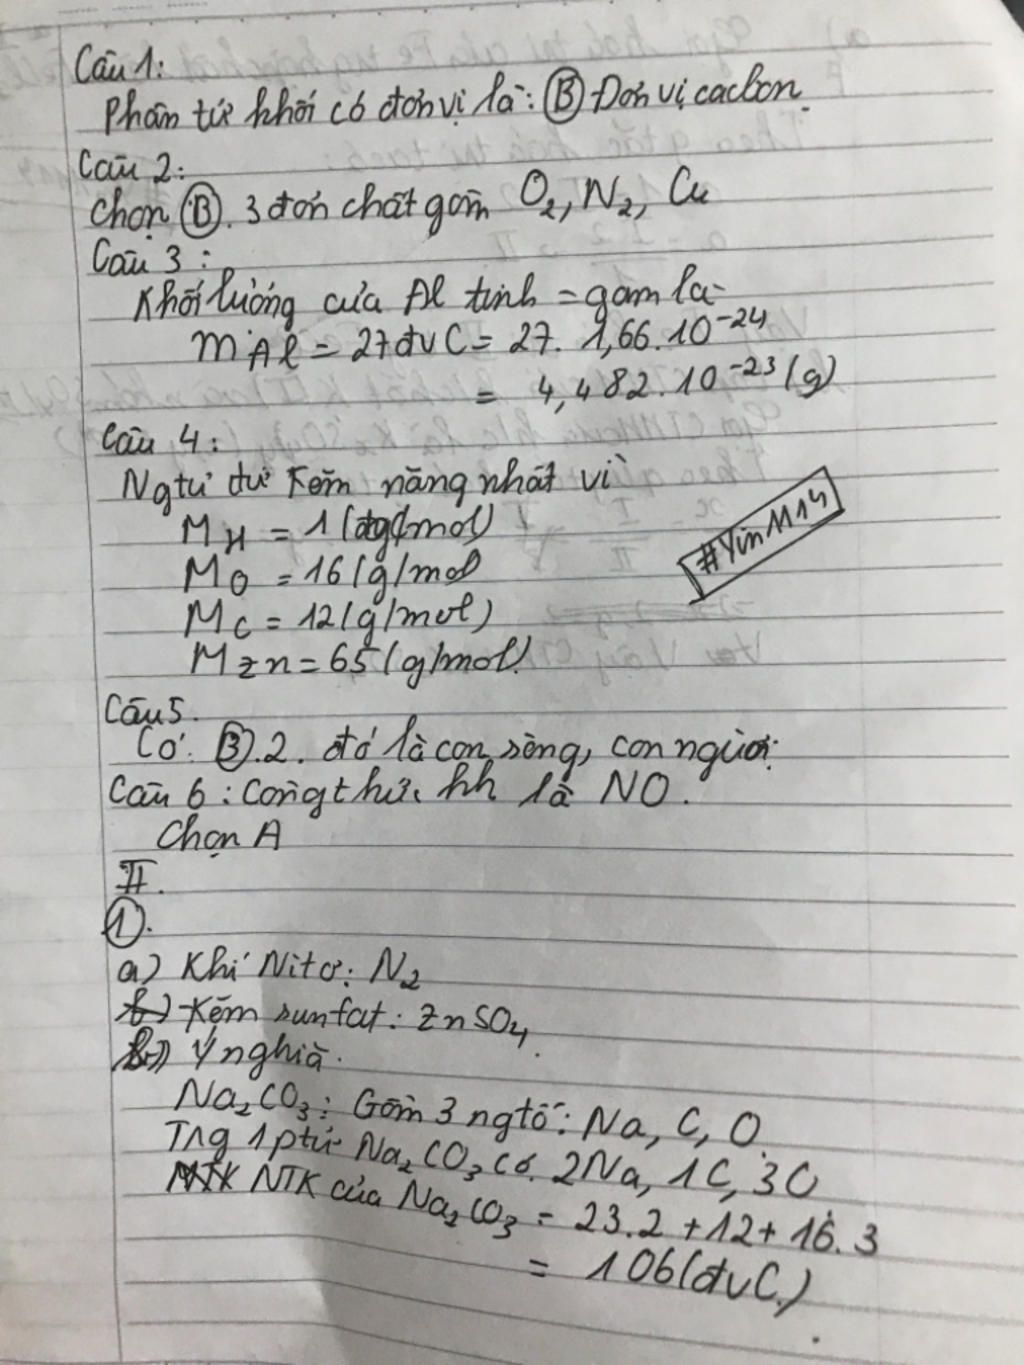 Câu 1:
Phân tử khối có đơn vị là: (B) Đơn vị cacbon.
Câu 2:
Chọn (B). 3 đơn chất gồm O2, N2, Cu
Câu 3:
Khối lượng của Al tính = gam là
mAl = 27đvC = 27. 1,66.10^-24
= 4,482.10^-23 (g)
Câu 4:
Ngtử dư Kẽm nặng nhất vì
MH = 1 (g/mol)
MO = 16 (g/mol
MC = 12 (g/mol)
MZn = 65 (g/mol)
#YinM14
Câu 5.
Có: (B).2. đó là con sông, con người.
Câu 6: Công thức hh là NO.
Chọn A
II.
(1).
a) Khí Nitơ: N2
Kẽm sunfat: ZnSO4.
b) Ý nghĩa.
Na2CO3: Gồm 3 ngtố: Na, C, O.
Trg 1 ptử Na2CO3 có 2Na, 1C, 3O
NTK của Na2CO3 = 23.2 + 12 + 16.3
= 106 (đvC.)